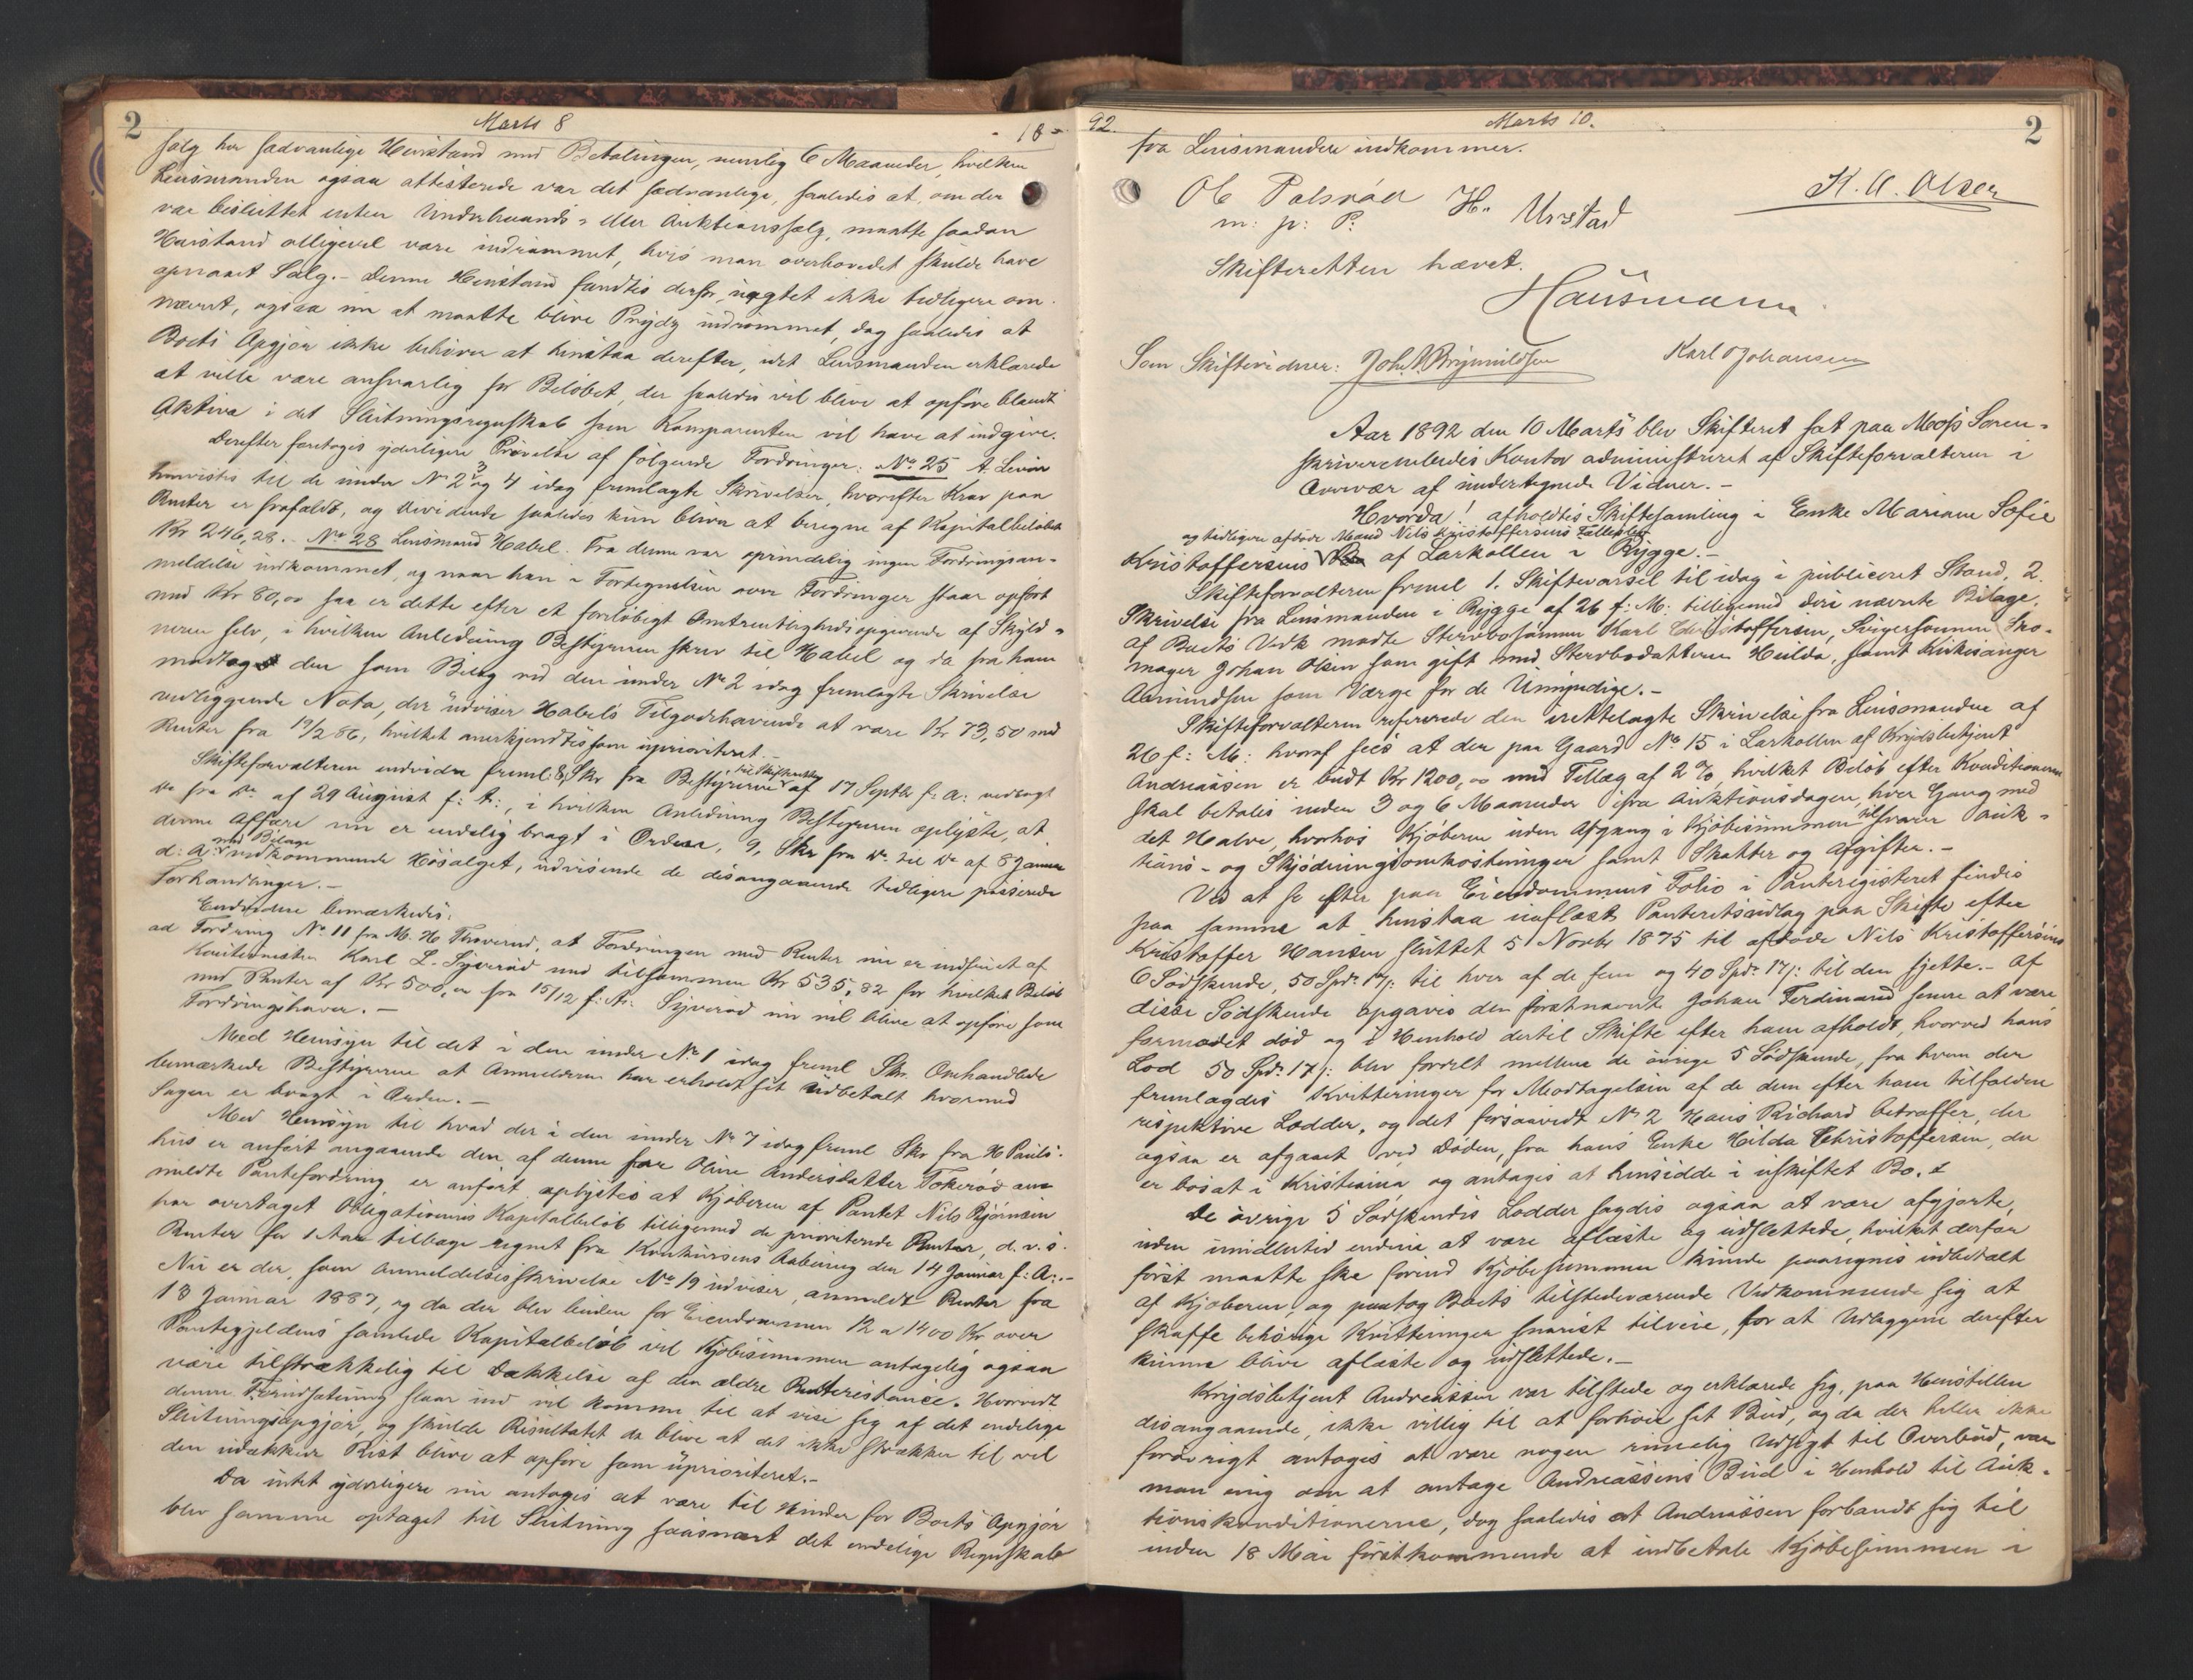 2
Marts 8
- 18 -
salg har sædvanlige Henstand med Betalingen, nemlig 6 Maaneder, hvilken
Lensmanden ogsaa attesterede var det sædvanlige, saaledes at, om der
var besluttet enten Underhaands- eller Auktionssalg, maatte saadan
Henstand alligevel være indrømmet, hvis man overhovedet skulde have
opnaaet Salg.- Denne Henstand fandtes derfor, uagtet ikke tidligere om-
nævnt, ogsaa nu at maatte blive Prydz indrømmet, dog saaledes at
Boets Opgjør ikke behøver at henstaa derefter, idet Lensmanden erklærede
at ville være ansvarlig for Beløbet, der saaledes vil blive at opføre blandt
Aktiva i det Slutningsregnskab som Komparenten vil have at indgive.
Derefter foretoges yderligere Prøvelse af følgende Fordringer: No 25 A. Levin
henvistes til de under No 2, 3 og 4 idag fremlagte Skrivelser, hvorefter Krav paa
Renter er frafaldt, og Dividende saaledes kun bliver at beregne af Kapitalbeløbet
Kr 246,28.- No 28 Lensmand Habel. Fra denne var oprindelig ingen Fordringsan-
meldelse indkommet, og naar han i Fortegnelsen over Fordringer staar opført
med Kr 80,00 saa er dette efter et foreløbigt Omtrentlighedsopgivende af Skyld-
neren selv, i hvilken Anledning Bestyreren skrev til Habel og da fra ham
modtog den som Bilag ved den under No 2 idag fremlagte Skrivelse
vedliggende Nota, der udviser Habels Tilgodehavende at være Kr 73,50 med
Renter fra 19/2 86, hvilket anerkjendtes som uprioriteret.-
Skifteforvalteren endvidere freml: 8, Skr fra Bestyreren til Skifteretten af 17 Septbr f: A: vedlagt
do fra do af 29 August f: A:, i hvilken Anledning Bestyreren oplyste, at
denne Affære nu er endelig bragt i Orden, 9, Skr fra do til do af 8 Januar
d: A: med Bilage vedkommende Høsalget, udvisende de desangaaende tidligere passerede
Forhandlinger.-
Endvidere bemærkedes:
ad Fordring No 11 fra M. H Thoverud, at Fordringen med Renter nu er indfriet af
Kautionisten Karl L. Syverød med tilsammen Kr 535,82 for hvilket Beløb
med Renter af Kr 500,00 fra 15/12 f: A: Syverød nu vil blive at opføre som
Fordringshaver.-
Med Hensyn til det i den under No 1 idag freml Skr. Omhandlede
bemærkede Bestyreren at Anmelderen har erholdt sit udbetalt hvormed
Sagen er bragt i Orden.-
Med Hensyn til hvad der i den under No 7 idag freml Skr fra H Pauls-
hus er anført angaaende den af denne for Oline Andersdatter Tokerød an-
meldte Pantefordring er anført oplystes at Kjøberen af Pantet Nils Bjørnsen
har overtaget Obligationens Kapitalbeløb tilligemed de prioriterede Renter, d. v. s.
Renter for 1 Aar tilbage regnet fra Konkursens Aabning den 14 Januar f: A:.-
Nu er der, som Anmeldelsesskrivelse No 19 udviser, anmeldt Renter fra
13 Januar 1887, og da der blev buden for Eiendommen 12 a 1400 Kr over
Pantegjeldens samlede Kapitalbeløb vil Kjøbesummen antagelig ogsaa
være tilstrækkelig til Dækkelse af den ældre Renterestance. Hvorvidt
denne Forudsætning slaar ind vil komme til at vise sig af det endelige
Slutningsopgjør, og skulde Resultatet da blive at det ikke strækker til vil
den udækkede Rest blive at opføre som uprioriteret.-
Da intet yderligere nu antoges at være til Hinder for Boets Opgjør
blev samme optaget til Slutning saasnart det endelige Regnskab
92.
Marts 10.
2
fra Lensmanden indkommer.
Ol Palsrød
m: p: P:
H. Urstad
K. A. Olsen
Skifteretten hævet.
Hausmann
Som Skiftevidner: Joh. A. Brynildsen
Karl Johansen
Aar 1892 den 10 Marts blev Skifteret sat paa Moss Soren-
skriverembedes Kontor administreret af Skifteforvalteren i
Overvær af undertegnede Vidner.-
Hvorda! afholdtes Skiftesamling i Enke Mariane Sofie
og tidligere afdøde Mand Nils Kristoffersens Fællesbo
Kristoffersens af Larkollen i Rygge.-
Skifteforvalteren freml 1. Skiftevarsel til idag i publiceret Stand, 2.
Skrivelse fra Lensmanden i Rygge af 26 f: M: tilligemed deri nævnte Bilage.
af Boets Vedk mødte Stervbosønnen Karl Christoffersen, Svigersønnen Sko-
mager Johan Olsen som gift med Stervbodatteren Hulda, samt Kirkesanger
Aamundsen som Værge for de Umyndige.-
Skifteforvalteren refererede den irettelagte Skrivelse fra Lensmanden af
26 f: M: hvoraf sees at der paa Gaard No 15 i Larkollen af Krydsbetjent
Andreassen er budt Kr 1200,00 med Tillæg af 2 %, hvilket Beløb efter Konditionerne
skal betales inden 3 og 6 Maaneder ifra Auktionsdagen, hver Gang med
det Halve, hvorhos Kjøberen uden Afgang i Kjøbesummen tilsvarer Auk-
tions- og Skjødningsomkostninger samt Skatter og Afgifter.-
Ved at se efter paa Eiendommens Folio i Panteregisteret findes
paa samme at henstaa uaflæst Panteretsudlæg paa Skifte efter
Kristoffer Hansen sluttet 5 Novbr 1875 til afdøde Nils Kristoffersens
6 Sødskende, 50 Spd. 17 s: til hver af de fem og 40 Spd. 17 s: til den sjette.- Af
disse Sødskende opgaves den førstnævnte Johan Ferdinand senere at være
formodet død og i Henhold dertil Skifte efter ham afholdt, hvorved hans
Lod 50 Spd. 17 s: blev fordelt mellem de øvrige 5 Sødskende, fra hvem der
fremlagdes Kvitteringer for Modtagelsen af de dem efter ham tilfaldne
respektive Lodder, og det forsaavidt No 2 Hans Richard betræffer, der
ogsaa er afgaaet ved Døden, fra hans Enke Hilda Christoffersen, der
er bosat i Kristiania og antages at hensidde i uskiftet Bo.
De øvrige 5 Sødskendes Lodder sagdes ogsaa at være afgjorte,
uden imidlertid endnu at være aflæste og udslettede, hvilket derfor
først maatte ske forend Kjøbesummen kunde paaregnes udbetalt
af Kjøberen, og paatog Boets tilstedeværende Vedkommende sig at
skaffe behørige Kvitteringer snarest tilveie, for at Udlæggene derefter
kunne blive aflæste og udslettede.-
Krydsbetjent Andreassen var tilstede og erklærede sig, paa Henstillen
desangaaende, ikke villig til at forhøie sit Bud, og da der heller ikke
forøvrigt antoges at være nogen rimelig Udsigt til Overbud, var
man enig om at antage Andreassens Bud i Henhold til Auk-
tionskonditionerne, dog saaledes at Andreassen forbandt sig til
inden 18 Mai førstkommende at indbetale Kjøbesummen i